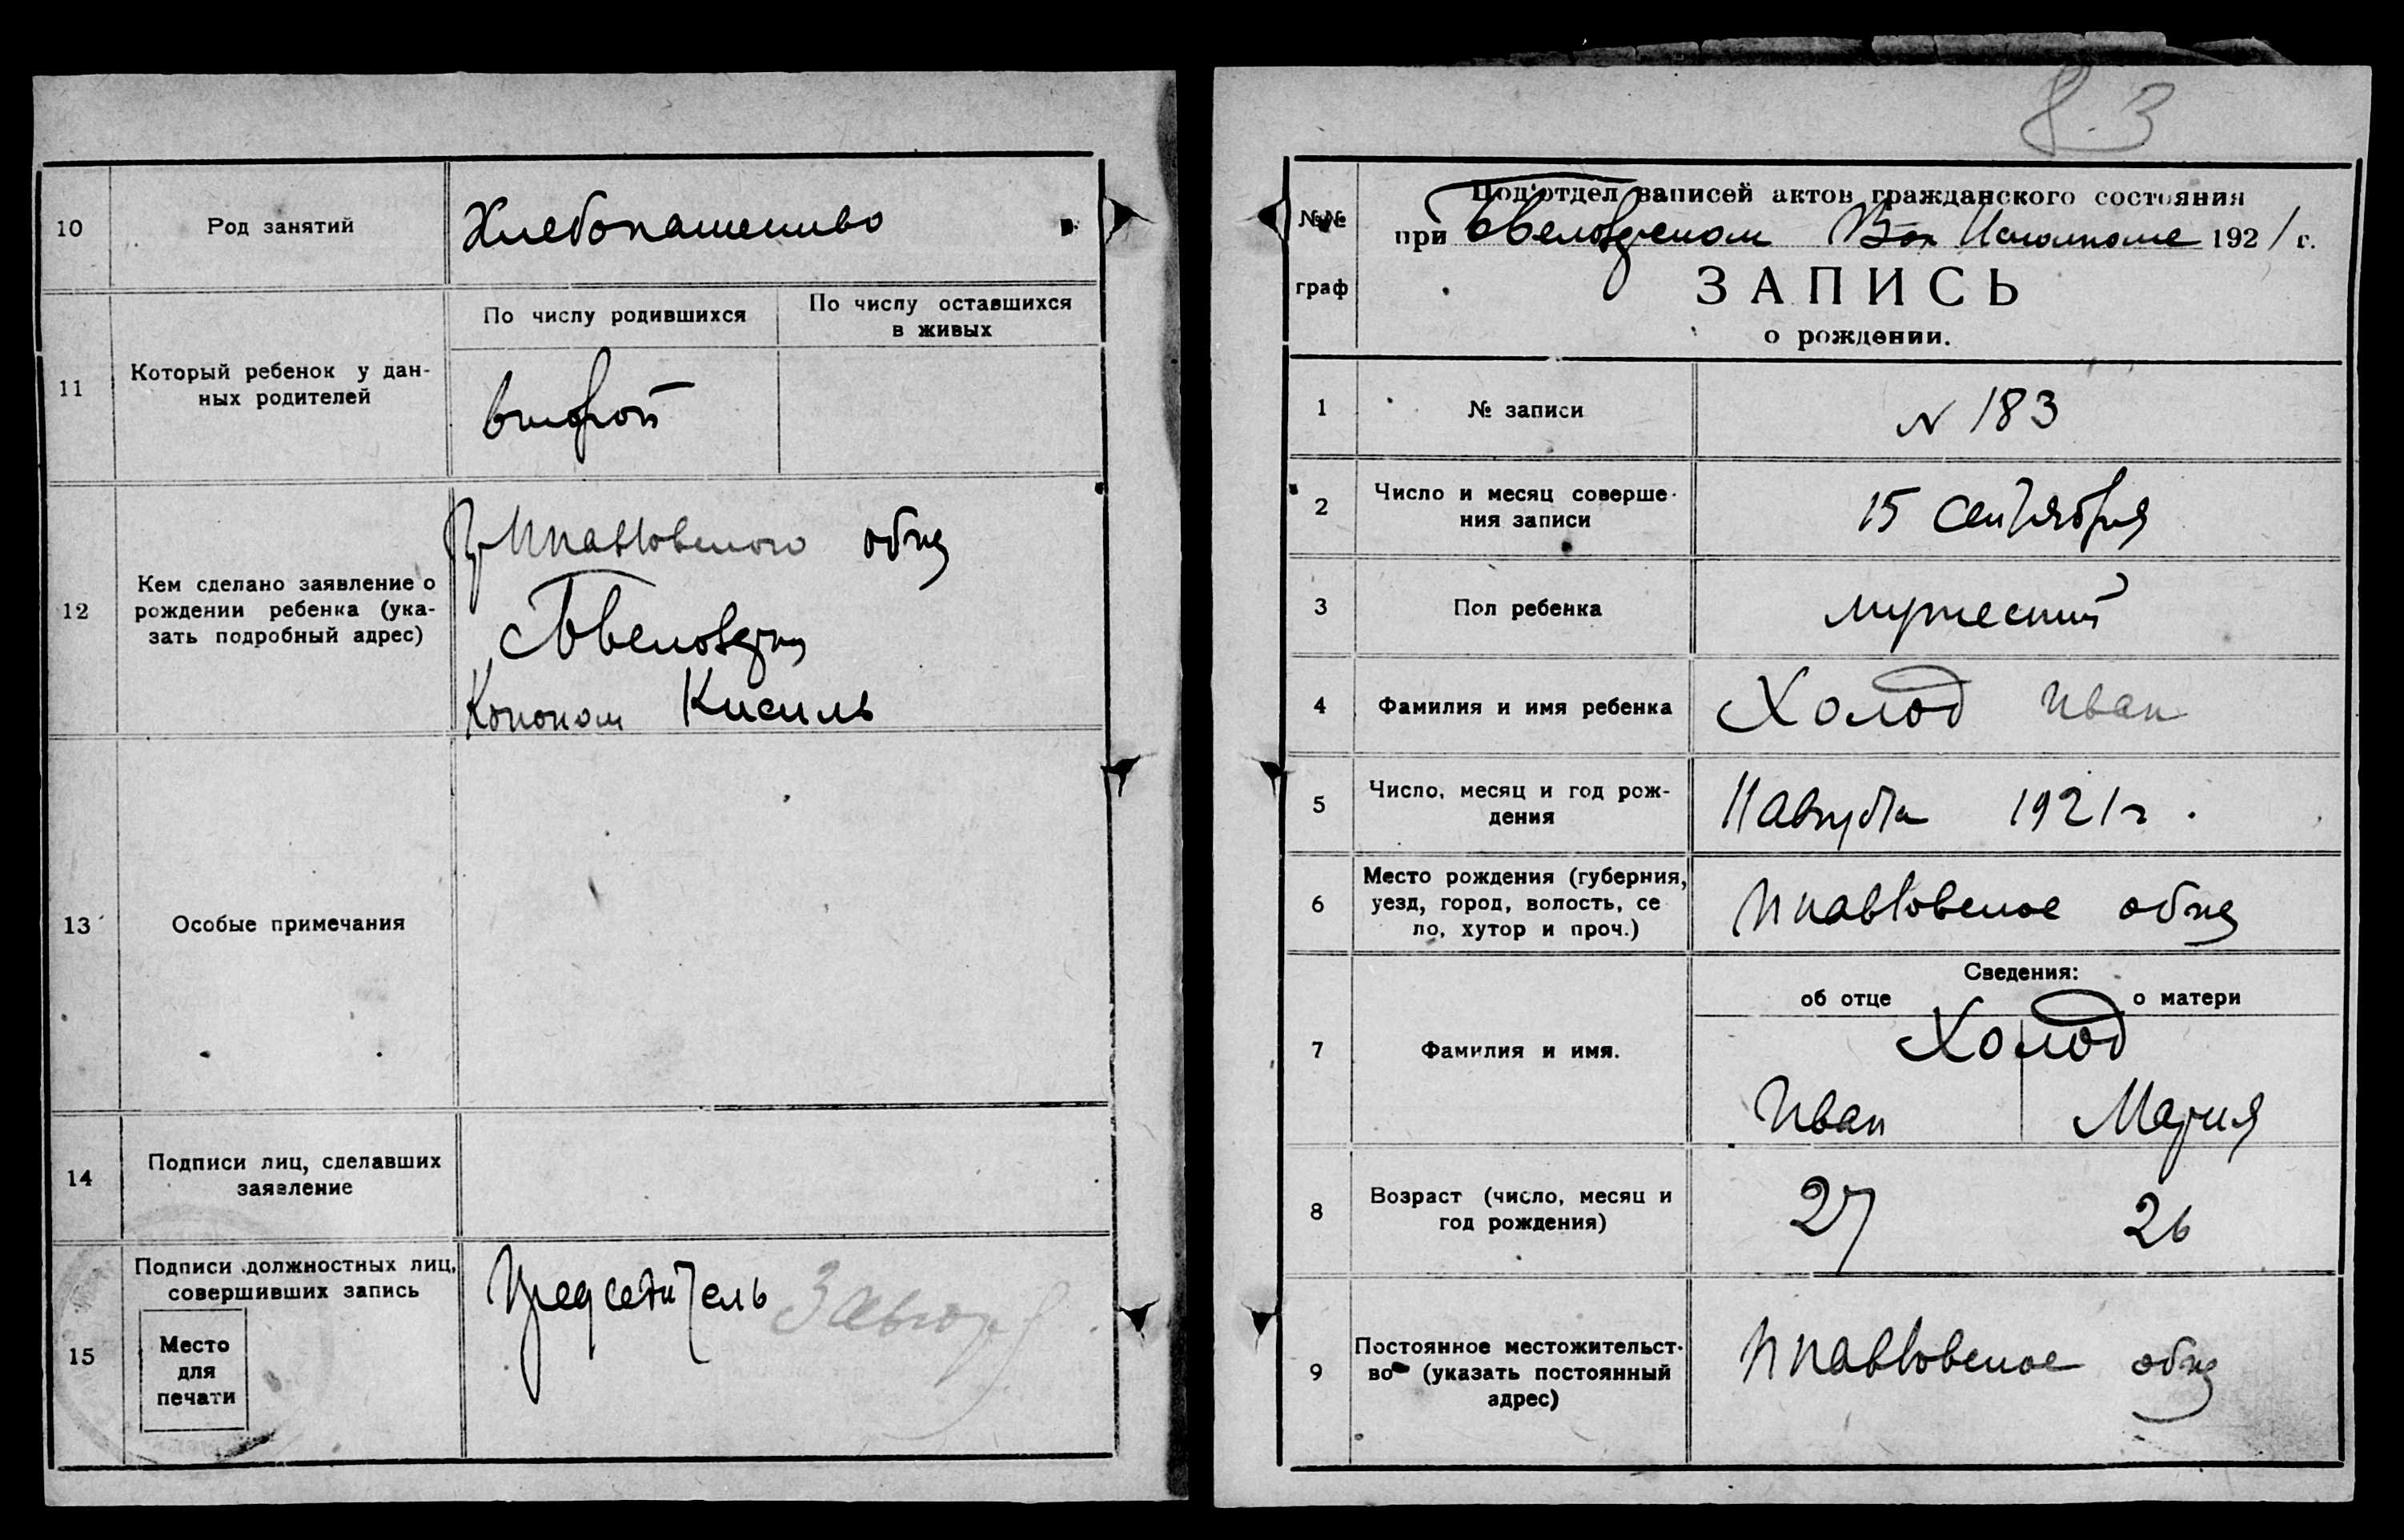 10
Род занятий
Хлебопашество
11
Который ребенок у дан-
ных родителей
По числу родившихся
По числу оставшихся
в живых
второй
12
Кем сделано заявление о
рождении ребенка (ука-
зать подробный адрес)
общ
Кононом Кисиль
13
Особые примечания
14
Подписи лиц, сделавших
заявление
15
Подписи должностных лиц,
совершивших запись
Место
для
печати
Председатель
83
№№
граф
Под'отдел записей актов гражданского состояния
при Исполкоме 1921 г.
ЗАПИСЬ
о рождении.
1
№ записи
N 183
2
Число и месяц соверше-
ния записи
15 Сентября
3
Пол ребенка
мужеский
4
Фамилия и имя ребенка
Холод Иван
5
Число, месяц и год рож-
дения
11 августа 1921 г.
6
Место рождения (губерния,
уезд, город, волость, се
ло, хутор и проч.)
общ
Сведения:
об отце
о матери
7
Фамилия и имя.
Холод
Иван Мария
8
Возраст (число, месяц и
год рождения)
27 26
9
Постоянное местожительст-
во (указать постоянный
адрес)
общ